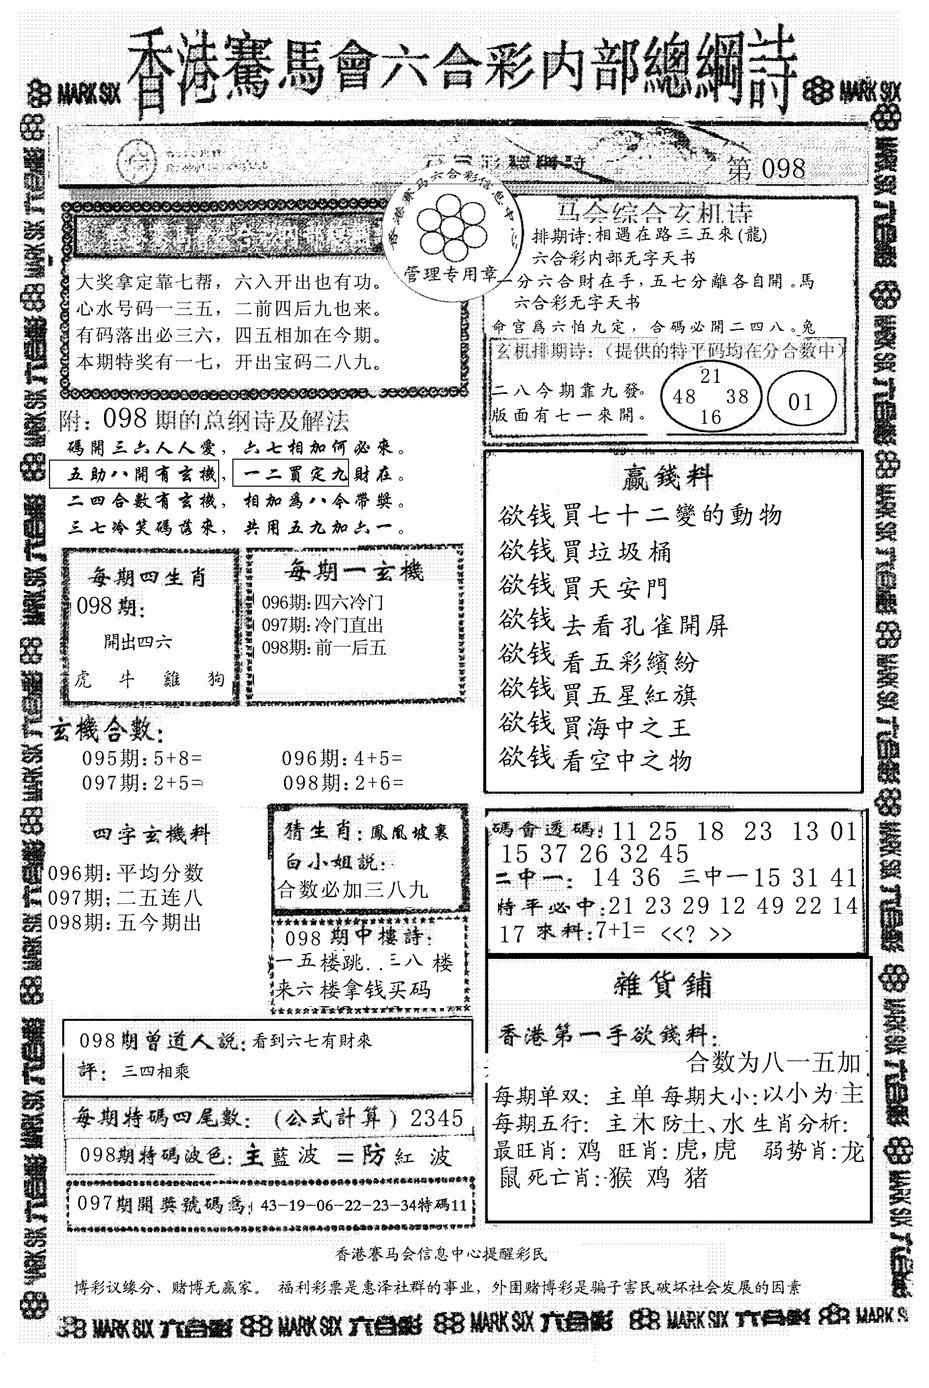 香港賽馬會六合彩内部總綱詩
MARK SIX
MARK SIX
第 098
香港赛马六合彩信息中心
管理专用章
大奖拿定靠七帮，六入开出也有功。
心水号码一三五，二前四后九也来。
有码落出必三六，四五相加在今期。
本期特奖有一七，开出宝码二八九。
马会综合玄机诗
排期诗:相遇在路三五來(龍)
六合彩内部无字天书
一分六合財在手，五七分離各自開。馬
六合彩无字天书
命宫爲六怕九定，合碼必開二四八。兔
玄机排期诗：（提供的特平码均在分合数中）
二八今期靠九發。
版面有七一來開。
21
48 38
16
01
附：098 期的总纲诗及解法
碼開三六人人愛，六七相加何必來。
五助八開有玄機，一二買定九財在。
二四合數有玄機，相加為八令帶獎。
三七冷笑碼落來，共用五九加六一。
每期四生肖
098期：
開出四六
虎 牛 雞 狗
每期一玄機
096期:四六冷门
097期:冷门直出
098期:前一后五
赢錢料
欲钱買七十二變的動物
欲钱買垃圾桶
欲钱買天安門
欲钱去看孔雀開屏
欲钱看五彩繽紛
欲钱買五星紅旗
欲钱買海中之王
欲钱看空中之物
玄機合數：
095期:5+8= 096期:4+5=
097期:2+5= 098期:2+6=
四字玄機料
096期:平均分数
097期;二五连八
098期:五今期出
猜生肖：鳳凰坡裏
白小姐説：
合数必加三八九
098 期中樓詩：
一五楼跳..三八 楼
来六楼拿钱买码
碼會透碼：11 25 18 23 13 01
15 37 26 32 45
二中一：14 36 三中一15 31 41
特平必中：21 23 29 12 49 22 14
17 來料：7+1= <<? >>
雜貨鋪
香港第一手欲錢料：
合数为八一五加
每期单双：主单 每期大小：以小为主
每期五行：主木防土、水 生肖分析：
最旺肖：鸡 旺肖：虎，虎 弱势肖：龙
鼠 死亡肖：猴 鸡 猪
098期曾道人説：看到六七有財來
評：三四相乘
每期特碼四尾數：（公式計算）2345
098期特碼波色：主藍波 =防紅波
097期開獎號碼爲：43-19-06-22-23-34特碼11
香港賽马会信息中心提醒彩民
博彩议缘分、赌博无赢家。 福利彩票是惠泽社群的事业，外围赌博彩是骗子害民破坏社会发展的因素
MARK SIX 六合彩 MARK SIX 六合彩 MARK SIX 六合彩 MARK SIX 六合彩 MARK SIX